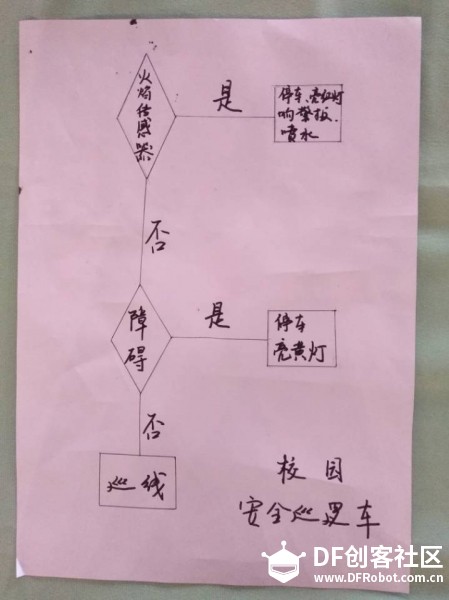 火焰传感器
是
停车、亮红灯
响警报、
喷水
否
障碍
是
停车
亮黄灯
否
巡线
校园
安全巡逻车
DF创客社区
www.DFRobot.com.cn